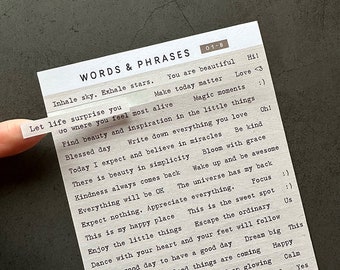 WORDS & PHRASES 01-8
Inhale sky. Exhale stars. You are beautiful Hi!
Let life surprise you Make today matter Love <3
Go where you feel most alive Magic moments :)
Find beauty and inspiration in the little things
Blessed day Write down everything you love Oh!
Today I expect and believe in miracles Be kind
There is beauty in simplicity Bloom with grace
Kindness always comes back Wake up and be awesome
Everything will be OK The universe has my back
Expect nothing. Appreciate everything. Focus :)
This is my happy place This is the sweet spot :)
Enjoy the little things Escape the ordinary Us
Dance with your heart and your feet will follow
good day to have a good day Dream big This
good things are coming Happy
glowing Calm
Yes